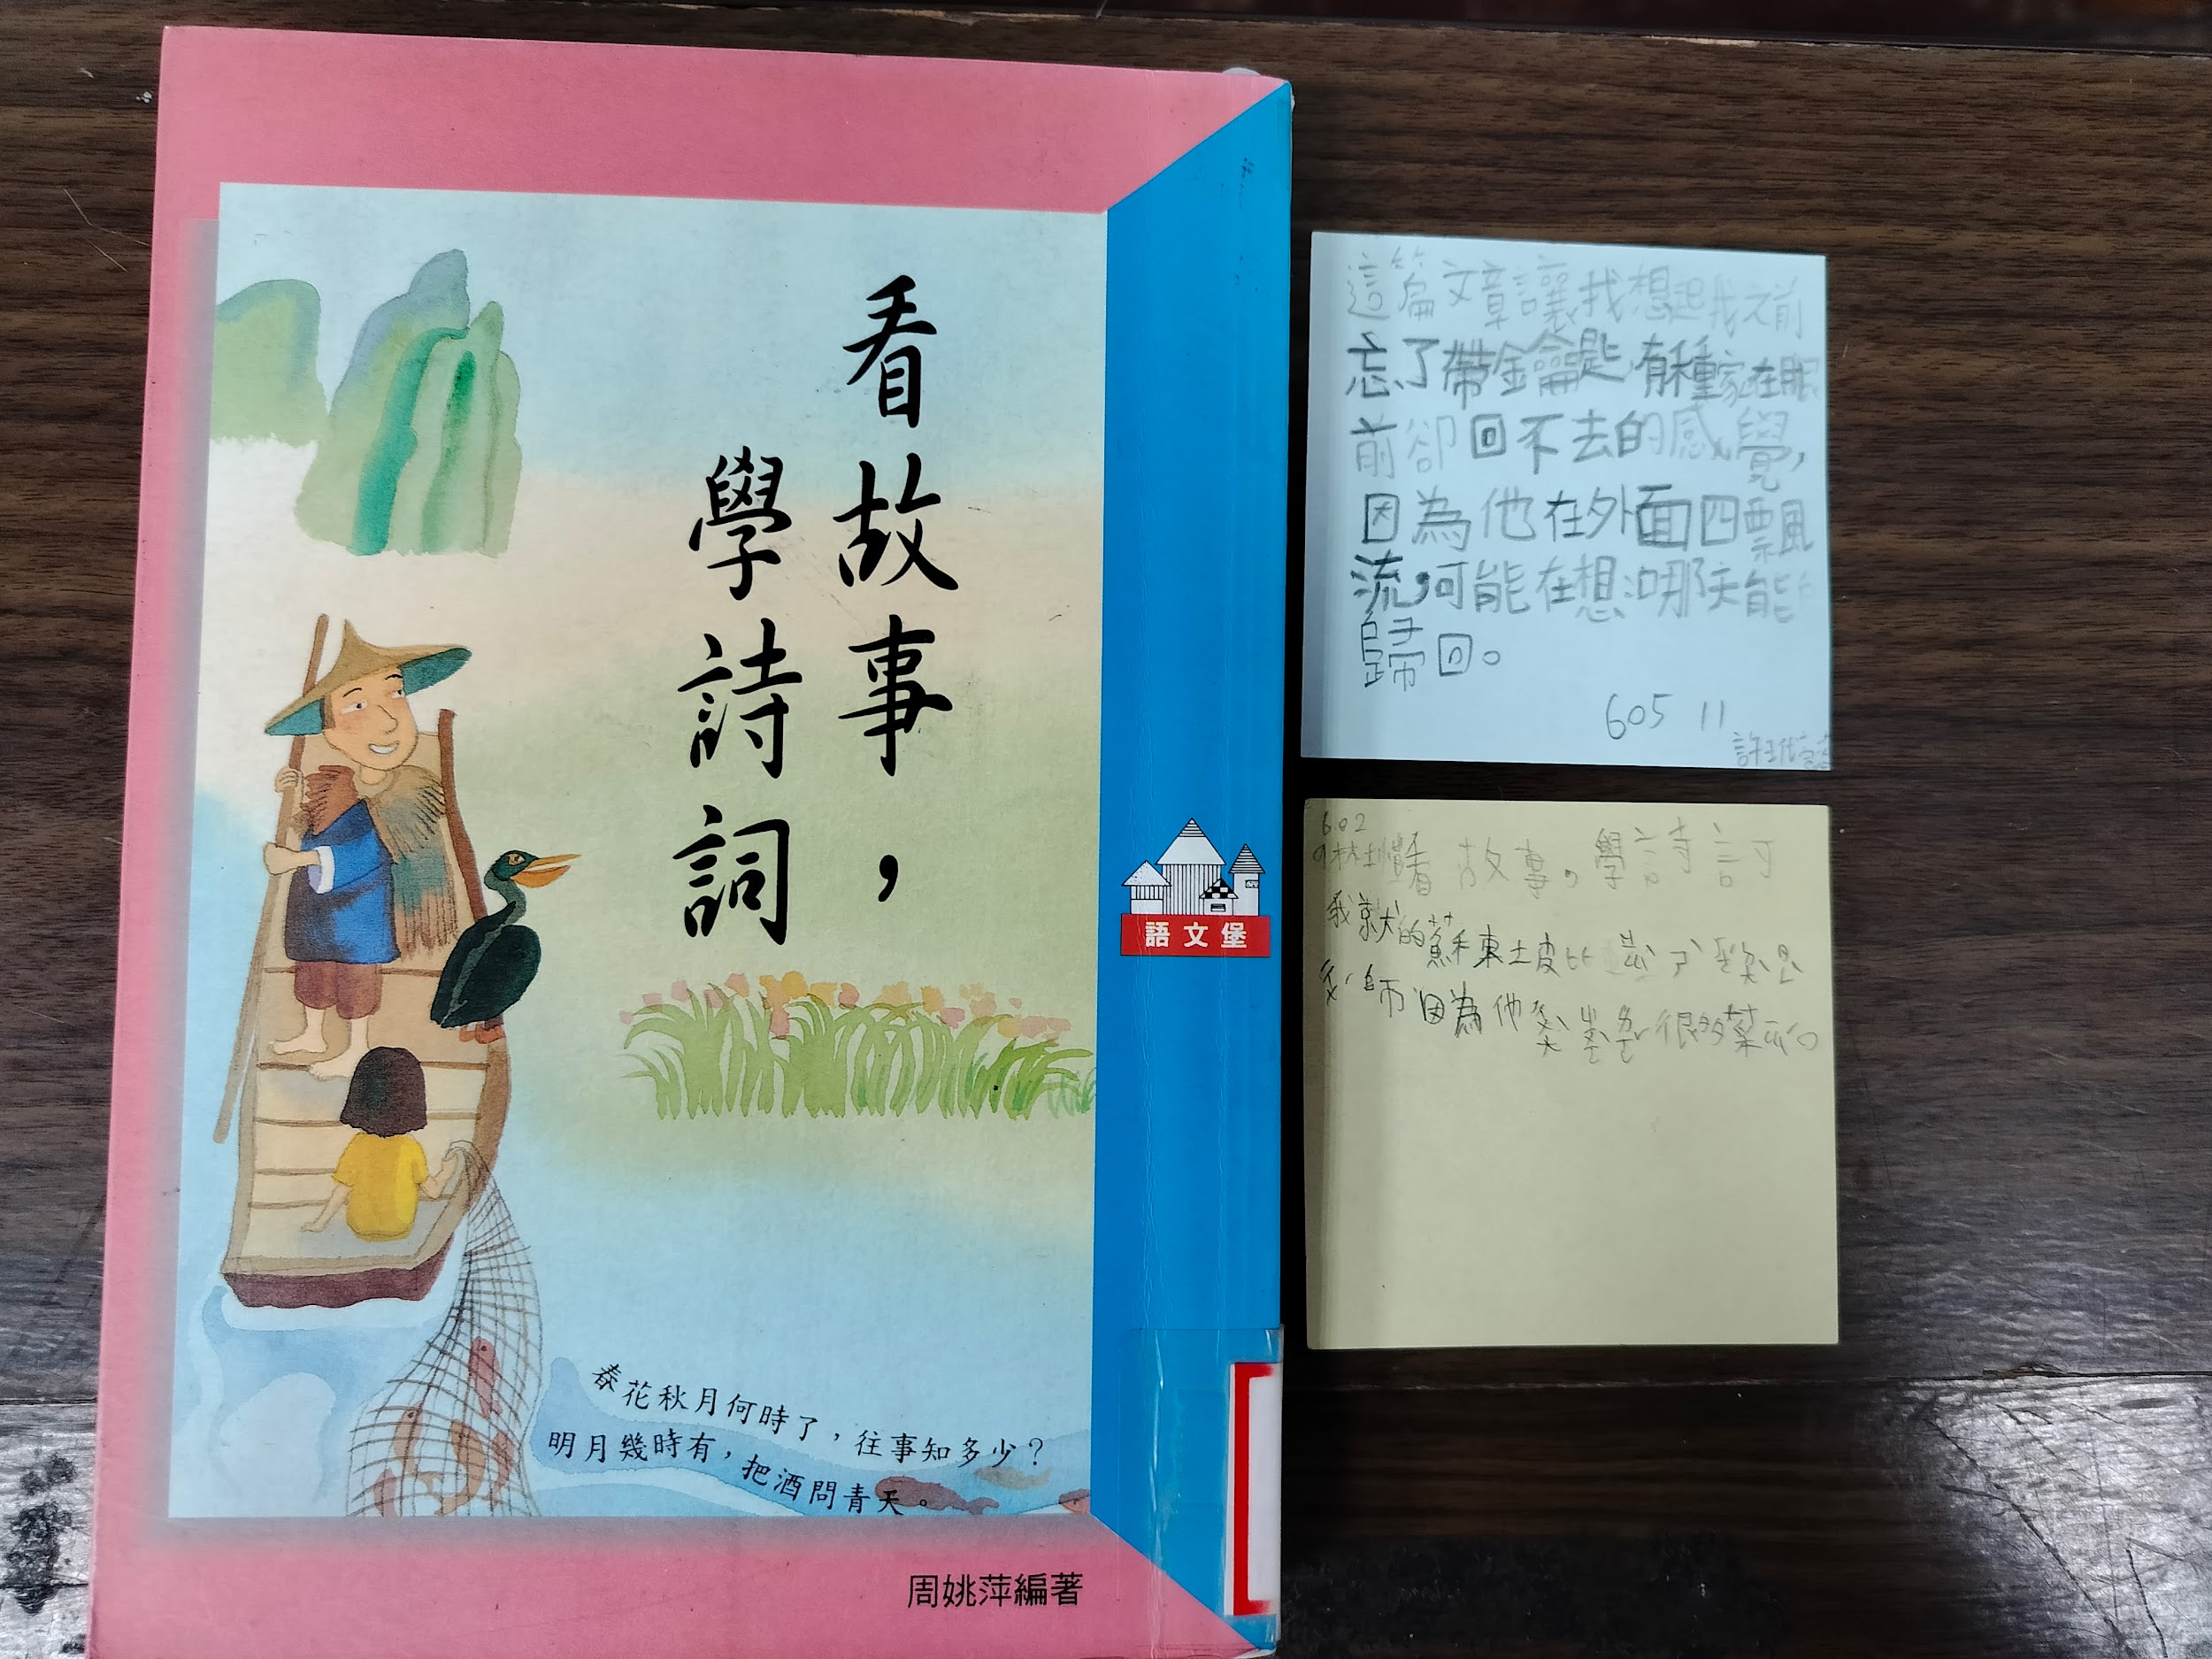 看故事，
學詩詞
語文堡
春花秋月何時了，往事知多少？
明月幾時有，把酒問青天。
周姚萍編著
這篇文章讓我想起我之前
忘了帶金鑰匙,有種家在眼
前卻回不去的感覺,
因為他在外面四飄
流,可能在想哪天能
歸回。
605 11
許
602
看故事。學詩詞
我 的蘇東坡比
師因為他 很多菜